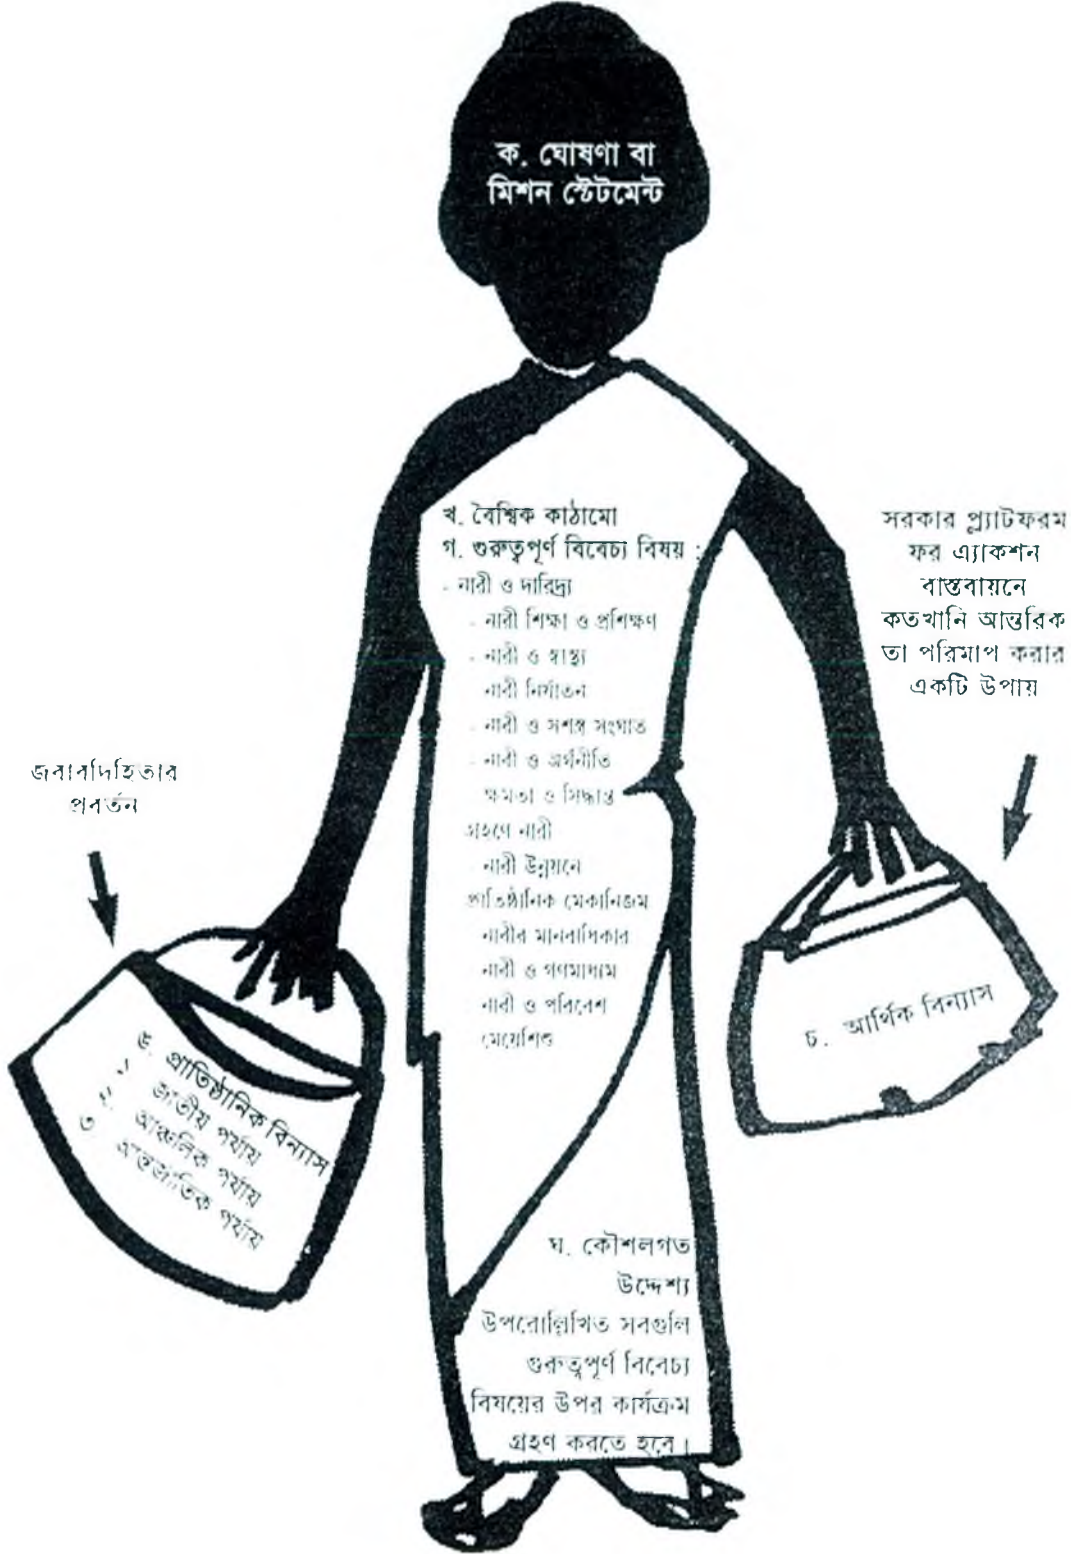 ক. ঘোষণা বা
মিশন স্টেটমেন্ট
খ. বৈশ্বিক কাঠামো
গ. গুরুত্বপূর্ণ বিবেচ্য বিষয় :
- নারী ও দারিদ্র্য
- নারী শিক্ষা ও প্রশিক্ষণ
- নারী ও স্বাস্থ্য
নারী নির্যাতন
- নারী ও সশস্ত্র সংঘাত
- নারী ও অর্থনীতি
ক্ষমতা ও সিদ্ধান্ত
গ্রহণে নারী
- নারী উন্নয়নে
প্রাতিষ্ঠানিক মেকানিজম
নারীর মানবাধিকার
- নারী ও গণমাধ্যম
- নারী ও পরিবেশ
মেয়েশিশু
সরকার প্ল্যাটফরম
ফর এ্যাকশন
বাস্তবায়নে
কতখানি আন্তরিক
তা পরিমাপ করার
একটি উপায়
জবাবদিহিতার
প্রবর্তন
ঙ. প্রাতিষ্ঠানিক বিন্যাস
১ জাতীয় পর্যায়
২. আঞ্চলিক পর্যায়
৩ আন্তর্জাতিক পর্যায়
চ. আর্থিক বিন্যাস
ঘ. কৌশলগত
উদ্দেশ্য
উপরোল্লিখিত সবগুলি
গুরুত্বপূর্ণ বিবেচ্য
বিষয়ের উপর কার্যক্রম
গ্রহণ করতে হবে।